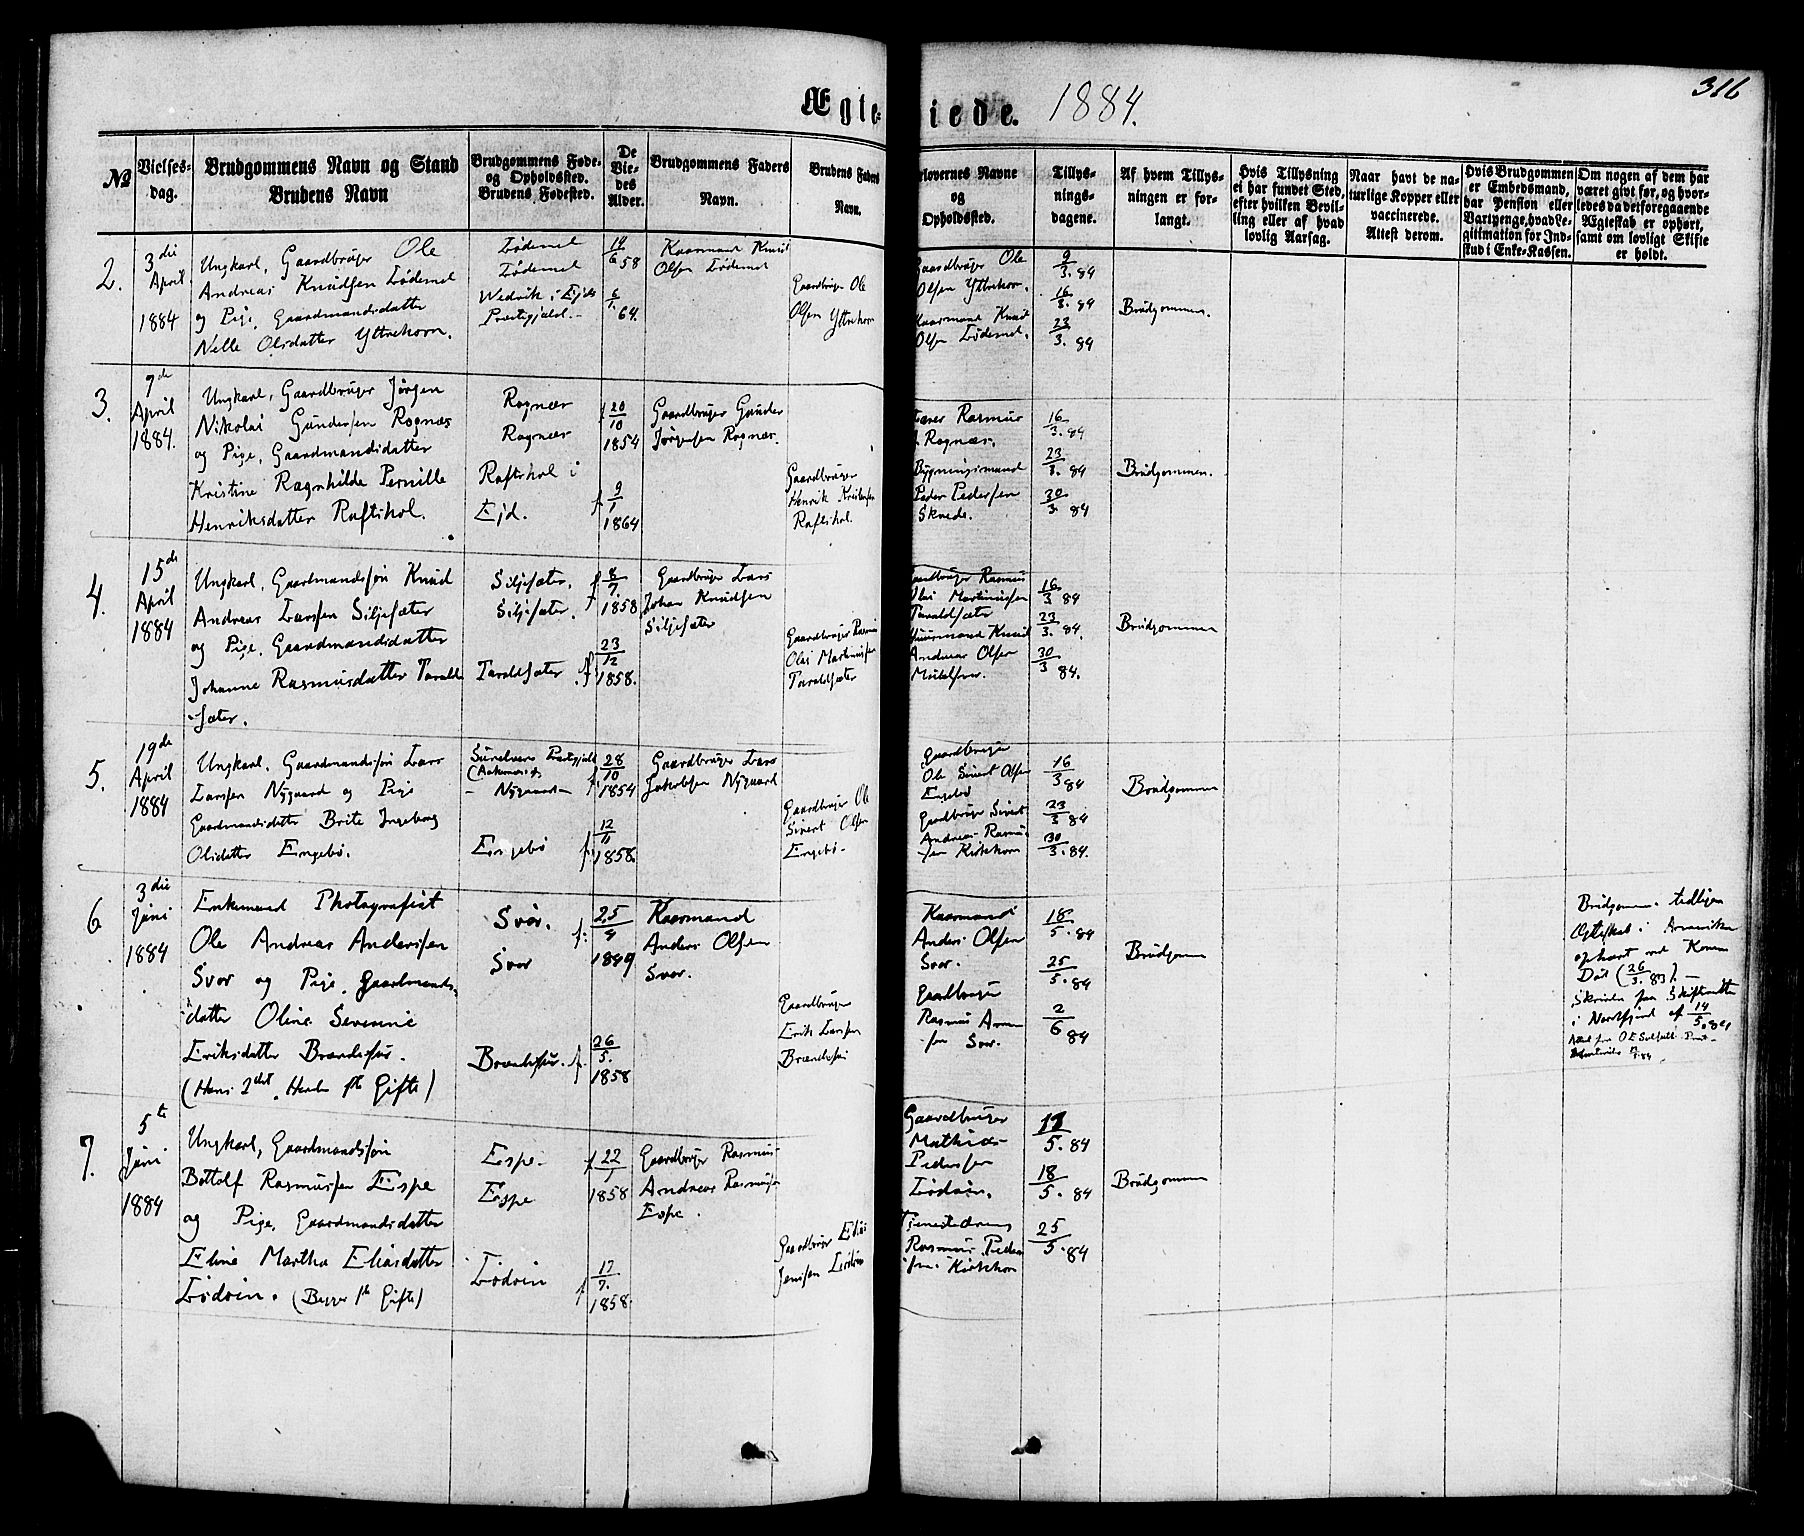 316
Ægte-
iede. 1884.
No
Vielses-
dag.
Brudgommens Navn og Stand
Brudens Navn
Brudgommens Føde-
og Opholdssted.
Brudens Fødested.
De
Vie-
des
Alder.
Brudgommens Faders
Navn.
Brudens Faders
Navn.
rlovernes Navne
og
Opholdssted.
Tillys-
nings-
dagene.
Af hvem Tillys-
ningen er for-
langt.
Hvis Tillysning
ei har fundet Sted,
efter hvilken Bevil-
ling eller af hvad
lovlig Aarsag.
Naar havt de na-
turlige Kopper eller
vaccinerede.
Attest derom.
Hvis Brudgommen
er Embedsmand,
har Pension eller
Vartpenge, hvad Le-
gitimation for Ind-
skud i Enke-Kassen.
Om nogen af dem har
været givt før, og hvor-
ledes da det foregaaende
Ægteskab er ophørt,
samt om lovligt Skifte
er holdt.
2.
3die
April
1884
Ungkarl, Gaardbruger Ole
Andreas Knudsen Lødemel
og Pige, Gaardmandsdatter
Nelle Olsdatter Yttrehorn.
Lødemel
Lødemel
Præstegjeld.
14/6 58
6/1. 64.
Kaarmand Knud
Olsen Lødemel
Gaardbruger Ole
Olsen Yttrehorn
Gaardbruger Ole
Olsen Yttrehorn.
Kaarmand Knud
Olsen Lødemel.
9/3. 84
16/3. 84
23/3. 84
Brudgommen.
3.
7de
April
1884.
Ungkarl, Gaardbruger Jørgen
Nikolai Gundersen Rognæs
og Pige, Gaardmandsdatter
Kristine Ragnhilde Pernille
Henriksdatter Raftshol.
Rognæs
Rognæs
Raftshol i
Ejd.
20/10
1854
f. 9/1
1864
Gaardbruger Gunder
Jørgensen Rognæs.
Gaardbruger
Henrik Kristensen
Raftshol.
Rasmus
Rognæs.
Bygningsmand
Peder Pedersen
16/3. 84
23/3. 84
30/3. 84
Brudgommen.
4.
15de
April
1884
Ungkarl, Gaardmandssøn Knud
Andreas Larssen Siljesæter
og Pige, Gaardmandsdatter
Johanne Rasmusdatter Tarald-
sæter.
Siljesæter.
Siljesæter.
Taraldsæter
f. 8/7
1858
f. 23/12
1858.
Gaardbruger Lars
Johan Knudsen
Siljesæter
Gaardbruger Rasmus
Olai Martinusen
Taraldsæter
Gaardbruger Rasmus
Olai Martinussen
Taraldsæter
Kaarmand Knud
Andreas Olsen
16/3 84
23/3. 84.
30/3 84.
Brudgommen
5.
19de
April
1884
Ungkarl, Gaardmandssøn Lars
Larssen Nygaard og Pige
Gaardmandsdatter Brite Ingeborg
Olsdatter Engebø.
Nygaard
Engebø
f. 28/10
1854
f. 12/11
1858.
Gaardbruger Lars
Jakobsen Nygaard
Gaardbruger Ole
Sivert Olsen
Engebø
Gaardbruger
Ole Sivert Olsen
Engebø
Gaardbruger Sivert
Andreas Rasmus-
sen Kirkhorn
16/3 84
23/3 84
30/3. 84.
Brudgommen
6
3die
Juni
1884
Enkemand Photografist
Ole Andreas Anderssen
Svor og Pige, Gaardmands-
datter Oline Severine
Eriksdatter Brandsfur.
(Hans 2det, Hendes 1ste Gifte)
Svor.
Svor
Brandsfur.
f: 25/9
1849
f. 26/5.
1858
Kaarmand
Anders Olsen
Svor.
Gaardbruger
Erik Larssen
Kaarmand
Anders Olsen
Svor.
Gaardbruger
Rasmus Arne-
sen Svor.
18/5. 84
25/5. 84
2/6 84
Brudgommen
Brudgommens tidligere
Ægteskab i Amerika
ophørt ved Konens
Død (26/3. 83). —
Skrivelse fra Skifteretten
i Nordfjord af 14/5. 84
7.
5te
Juni
1884
Ungkarl, Gaardmandssøn
Bottolf Rasmussen Espe
og Pige, Gaardmandsdatter
Eline Martha Eliasdatter
Lødøin. (Begges 1ste Gifte)
Espe
Espe
Lødøin
f. 22/1
1858
f. 17/7.
1858.
Gaardbruger Rasmus
Andreas Rasmussen
Espe.
Gaardbruger Elias
Jenssen Lødøin
Gaardbruger
Mathias
Pedersen
Lødøin.
Tjenestedreng
Rasmus Peder
Kirkhorn
11/5. 84
18/5. 84
25/5. 84
Brudgommen